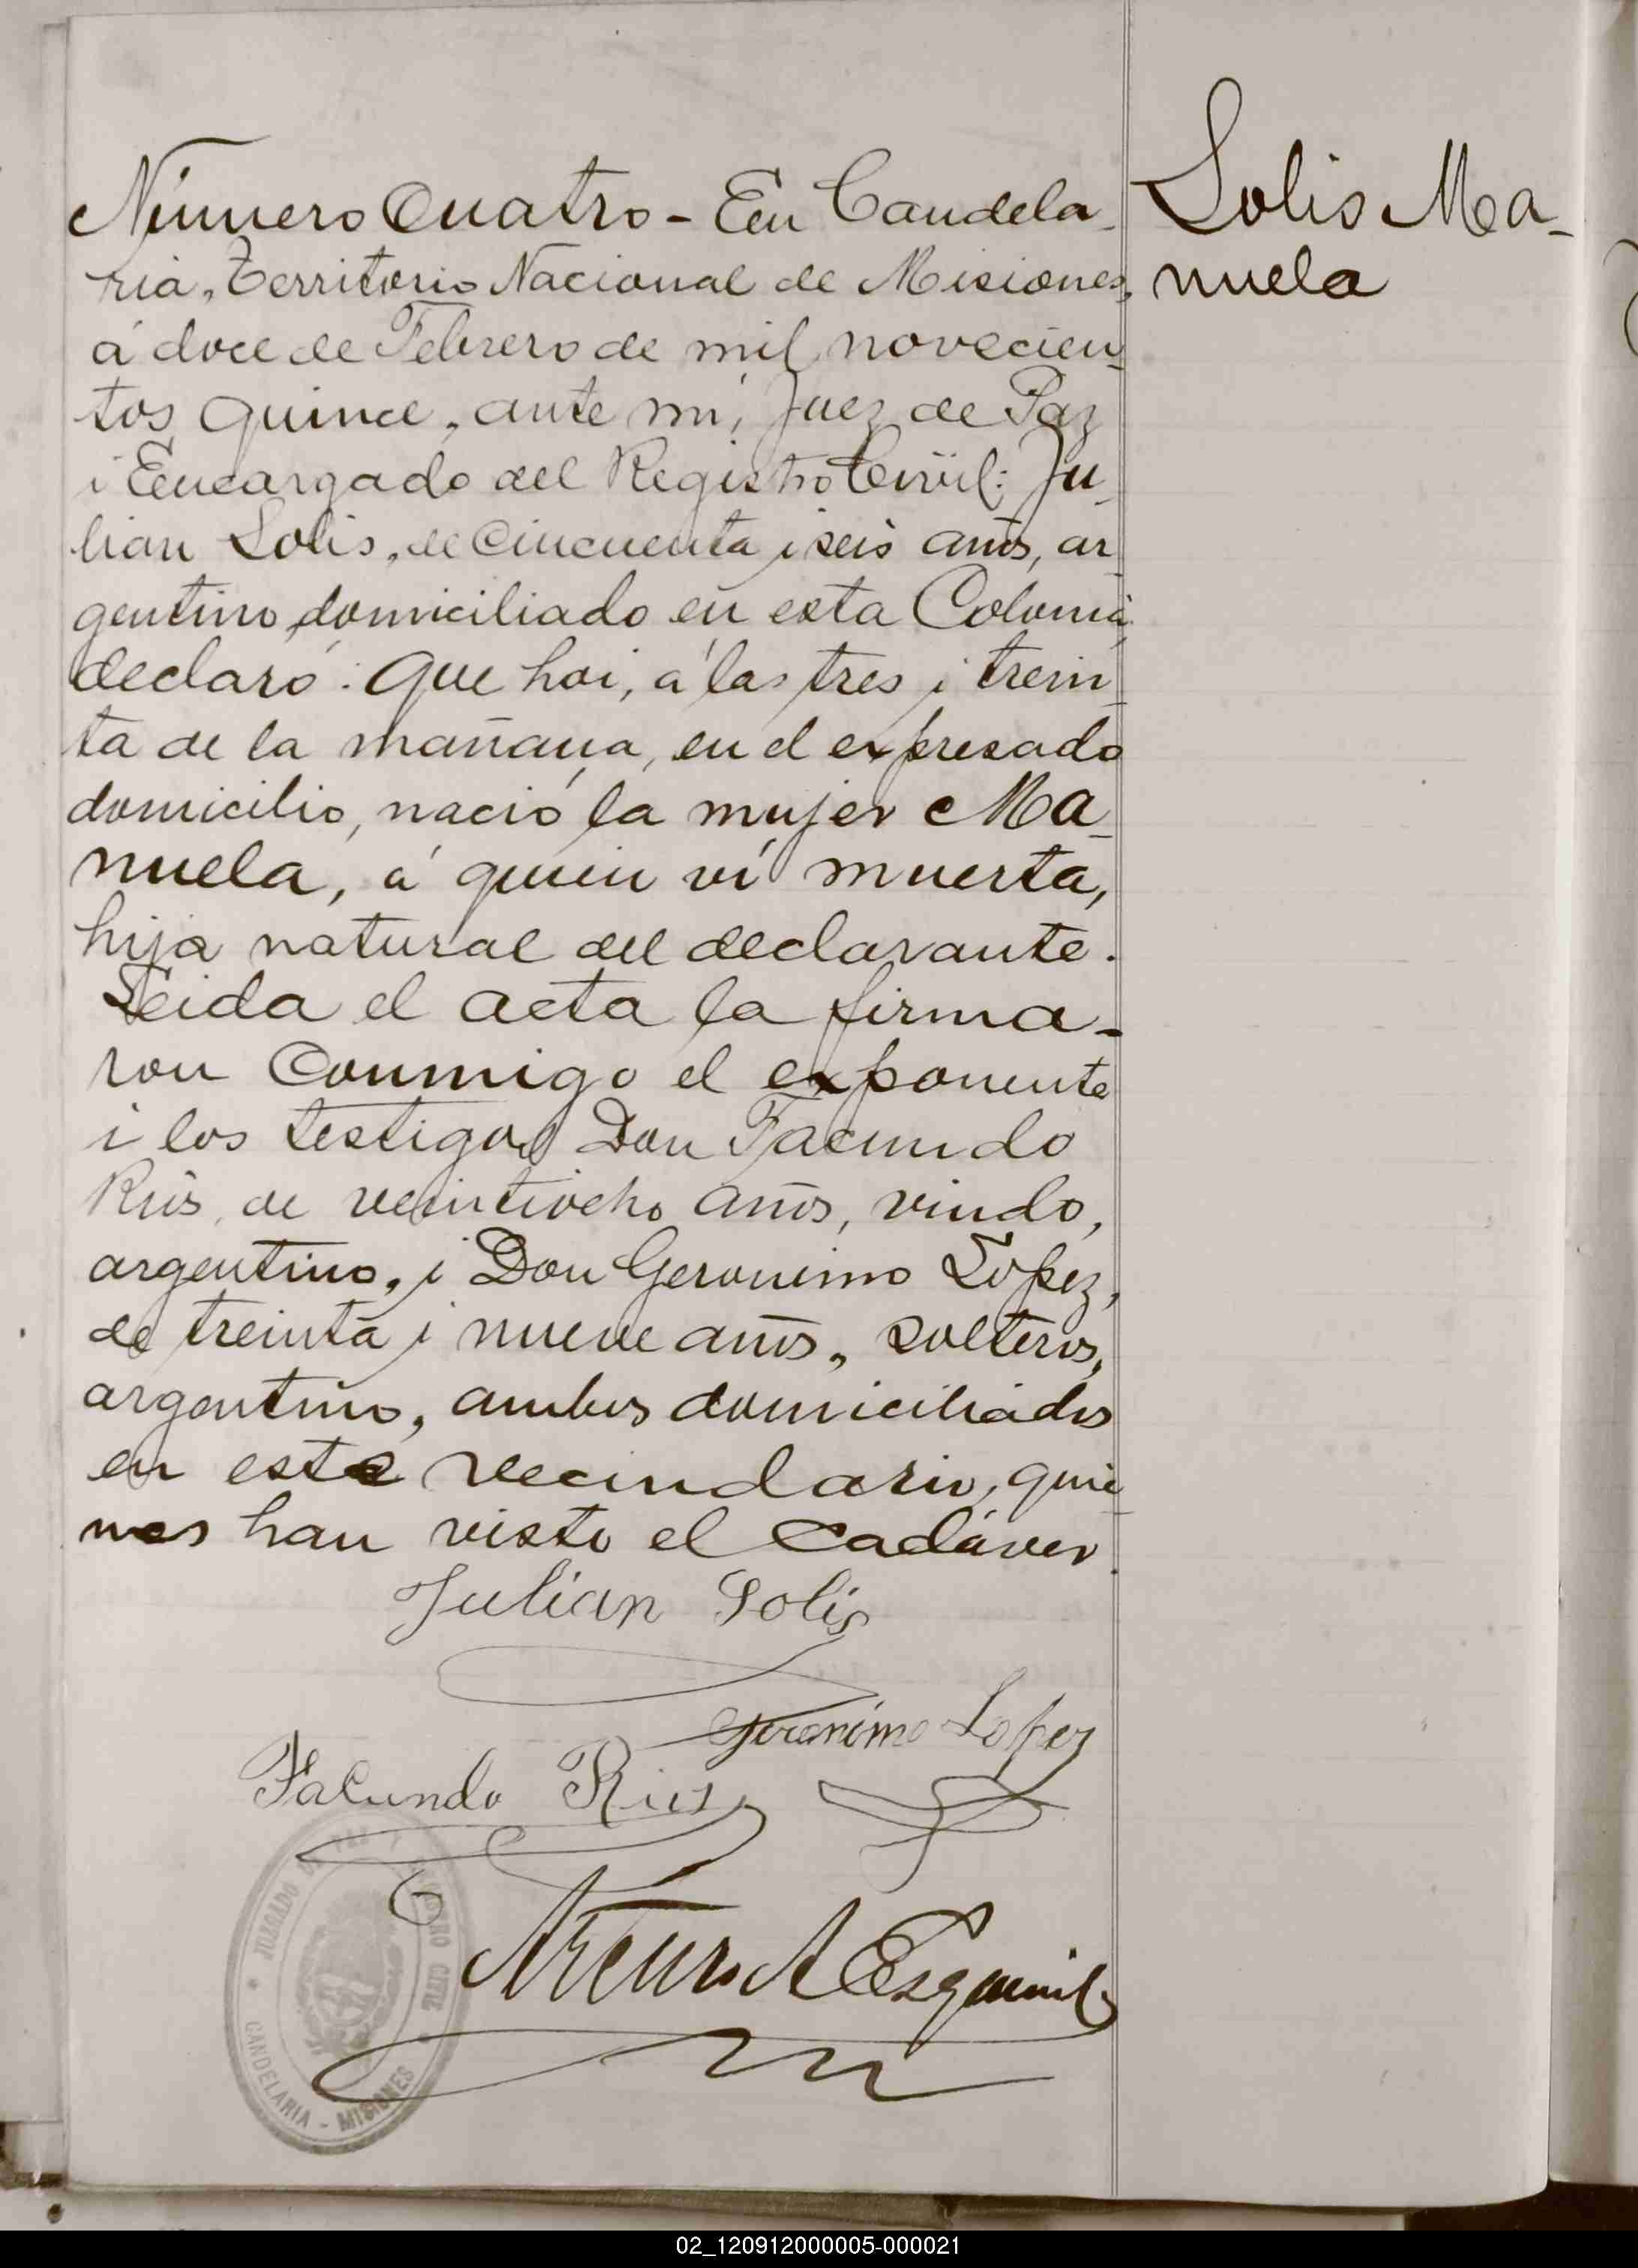 Número Cuatro - En Candela-
ria, Territorio Nacional de Misiones,
á doce de Febrero de mil novecien-
tos quince, ante mí, Juez de Paz
i Encargado del Registro Civil: Ju-
lian Solis, de cincuenta i seis años, ar-
gentino, domiciliado en esta Colonia,
declaró: Que hoi, á las tres i trein-
ta de la mañana, en el expresado
domicilio, nació la mujer Ma-
nuela, á quien ví muerta,
hija natural del declarante.
Leida el acta la firma-
ron conmigo el exponente
i los testigos Don Facundo
Rios, de veintiocho años, viudo,
argentino, i Don Geronimo Lopez,
de treinta i nueve años, solteros,
argentino, ambos domiciliados
en este vecindario, quie-
nes han visto el cadáver.
Solis Ma-
nuela
Julian Solis
Geronimo Lopez
Facundo Rios
Arturo A Esquivel
JUZGADO DE PAZ Y REGISTRO CIVIL
CANDELARIA - MISIONES
02_120912000005-000021